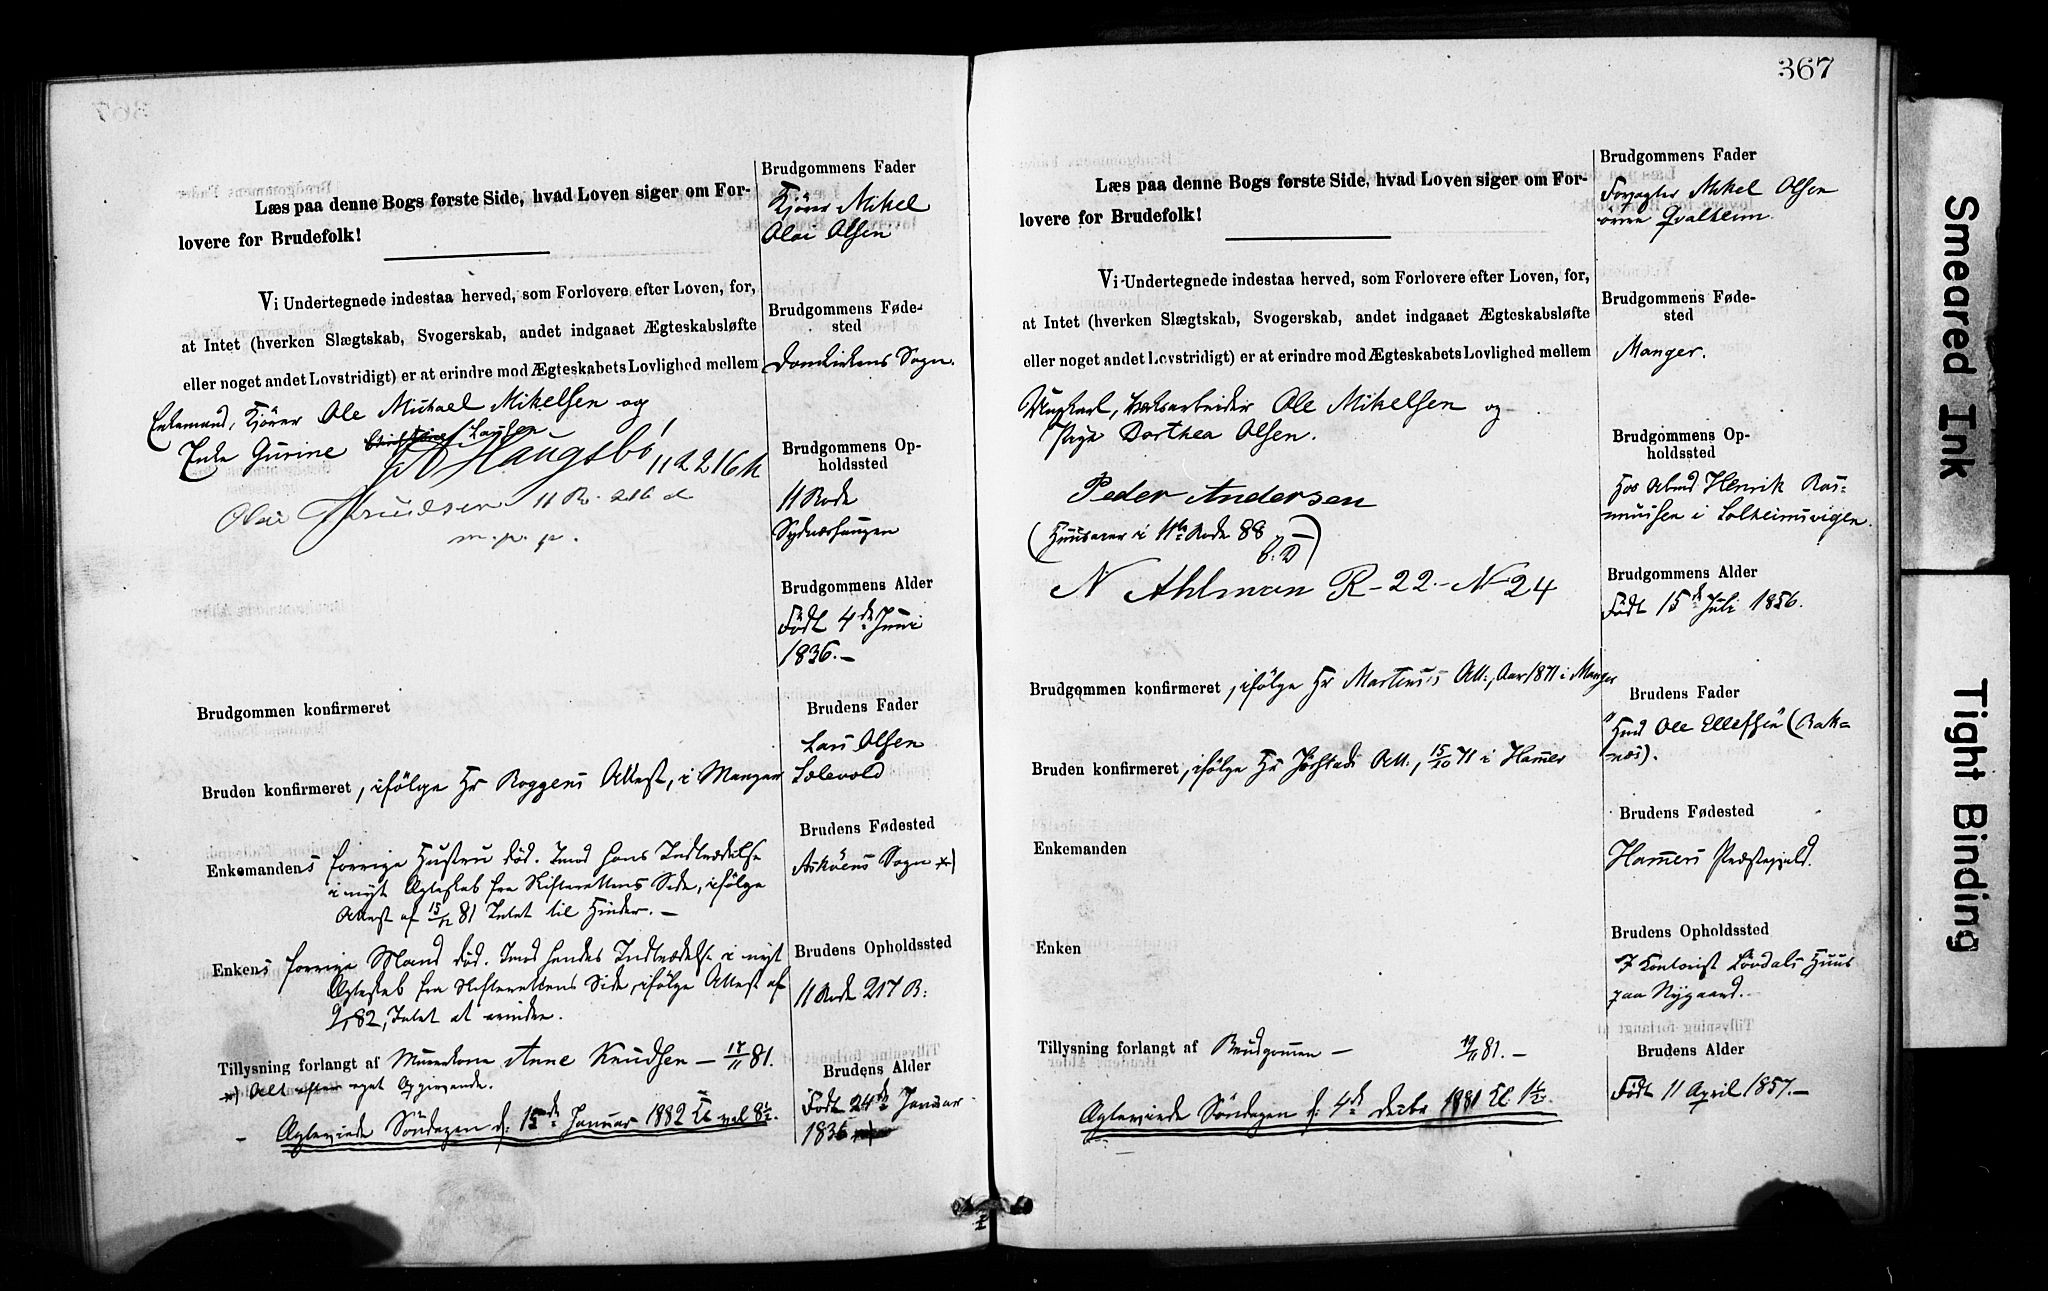 367
Læs paa denne Bogs første Side, hvad Loven siger om For-
lovere for Brudefolk!
Vi Undertegnede indestaa herved, som Forlovere efter Loven, for,
at Intet (hverken Slægtskab, Svogerskab, andet indgaaet Ægteskabsløfte
eller noget andet Lovstridigt) er at erindre mod Ægteskabets Lovlighed mellem
Enkemand, Kjører Ole Michael Mikelsen og
Enke Gurine Larsen.
Haugsbö 11 R 216
Olai Knudsen 11 R. 216
m. p. p.
Brudgommen konfirmeret
Bruden konfirmeret, ifölge Hr Roggens Attest, i Manger
Enkemandens forrige Hustru död. Imod hans Indtrædelse
i nyt Ægteskab fra Skifterettens Side, ifölge
Attest af 15/12 81 Intet til Hinder. —
Enkens forrige Mand död. Imod hendes Indtrædelse i nyt
Ægteskab fra Skifterettens Side, ifölge Attest af
9/1 82, Intet at erindre.
Tillysning forlangt af Murerkone Anne Knudsen — 17/11 81.
*) Alt efter eget Opgivende.
Ægteviede Söndagen d: 15de Januar 1882 Kl vel 8½.
Brudgommens Fader
Kjörer Mikel
Olai Olsen
BrudgommensFøde-
sted
Domkirkens Sogn.
Brudgommens Op-
holdssted
11 Rode
Sydnæshaugen
Brudgommens Alder
Födt 4de Juni
1836. —
Brudens Fader
Lars Olsen
Sælevold
Brudens Fødested
Askøens Sogn *)
Brudens Opholdssted
11 Rode 217 B:
Brudens Alder
Födt 24de Januar
1836
Læs paa denne Bogs første Side, hvad Loven siger om For-
lovere for Brudefolk!
Vi Undertegnede indestaa herved, som Forlovere efter Loven, for,
at Intet (hverken Slægtskab, Svogerskab, andet indgaaet Ægteskabsløfte
eller noget andet Lovstridigt) er at erindre mod Ægteskabets Lovlighed mellem
Ungkarl, Ole Mikelsen og
Pige Dorthea Olsen.
Peder Andersen
(Huuseier i 11te Rode 88
N Ahlman R – 22. – N 24
Brudgommen konfirmeret, ifölge Hr Martens's Att., Aar 1871 i Manger
Bruden konfirmeret, ifölge Hr Jörstads Att., 15/10 71 i Hamer
Enkemanden
Enken
Tillysning forlangt af Brudgomen — 19/11 81. —
Ægteviede Söndagen d: 4de Decbr 1881 Kl 1½.
Brudgommens Fader
Forpagter Mikel Olsen
övre Qvalheim.
Brudgommens Føde-
sted
Manger.
Brudgommens Op-
holdssted
Hos Henrik Ras-
mussen i Solheimsvigen.
Brudgommens Alder
Födt 15de Juli 1856.
Brudens Fader
Ole Ellefsen (Rak-
nes).
Brudens Fødested
Hamers Præstegjeld.
Brudens Opholdssted
I Kontorist Lövdals Huus
paa Nygaard.
Brudens Alder
Födt 11 April 1857. —
Smeared Ink
Tight Binding